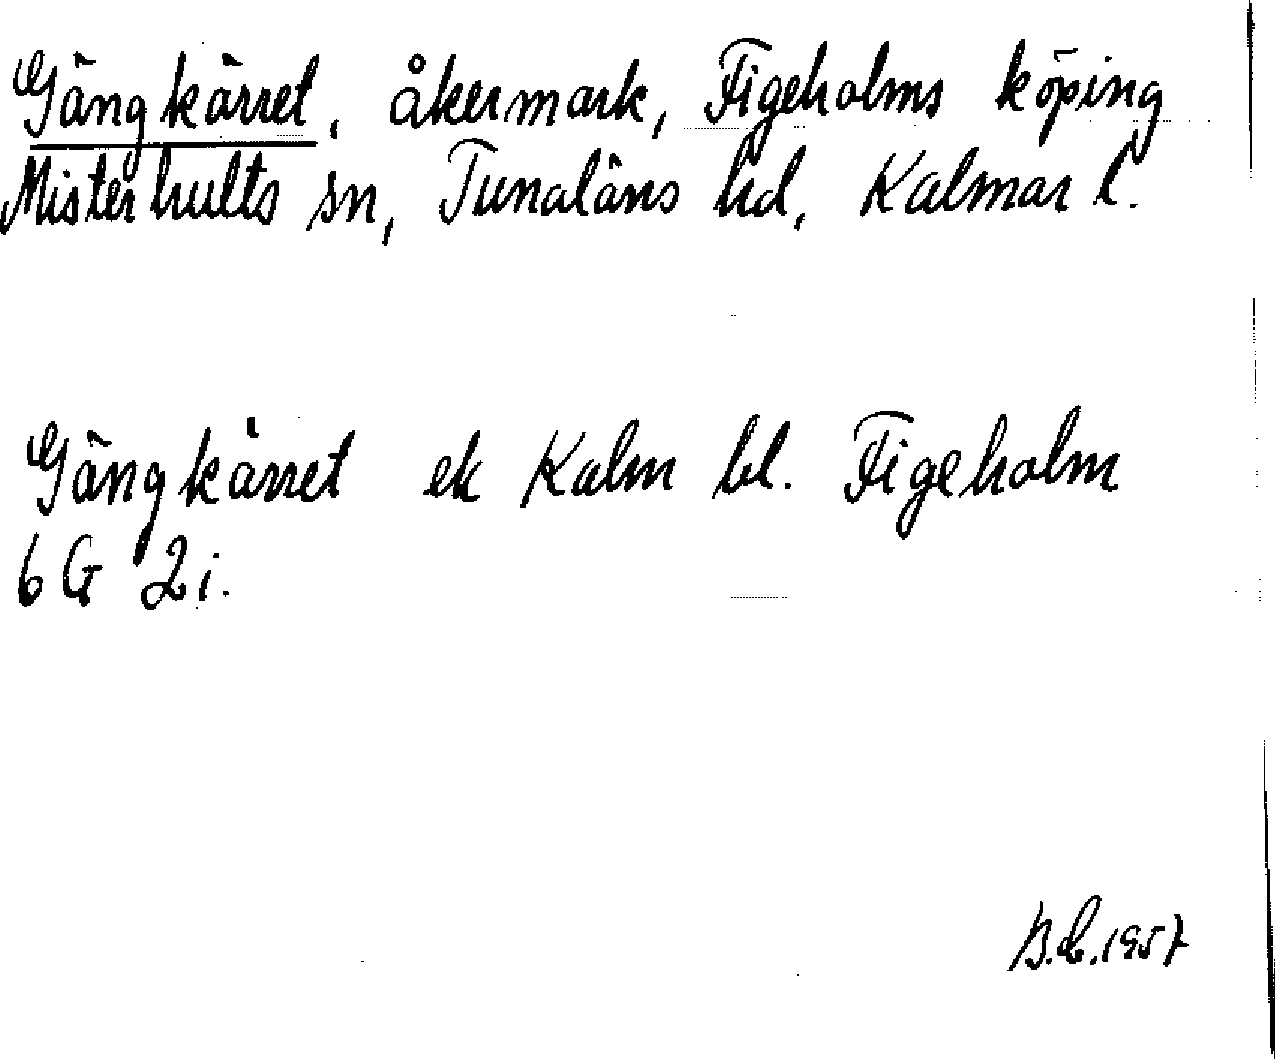 Gängkärret, åkermark, Figeholms köping
Misterhults sn, Tunaläns hd, Kalmar l.
Gängkärret ek Kalm bl. Figeholm
6 G 2i.
B.L. 1957